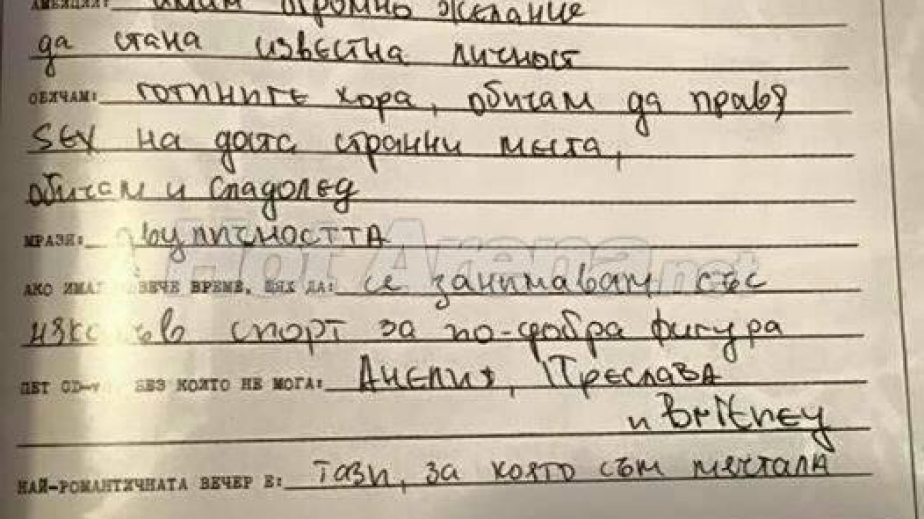 АМБИЦИЯ: имам огромно желание
да стана известна личност
ОБИЧАМ: готините хора, обичам да правя
SEX на доста странни места,
обичам и сладолед
МРАЗЯ: двуличността
АКО ИМАХ ПОВЕЧЕ ВРЕМЕ, БИХ ДА: се занимавам със
някакъв спорт за по-добра фигура
ПЕТ CD-та, БЕЗ КОИТО НЕ МОГА: Анелия, Преслава
и Britney
НАЙ-РОМАНТИЧНАТА ВЕЧЕР Е: тази, за която съм мечтала
Hot Arena.net